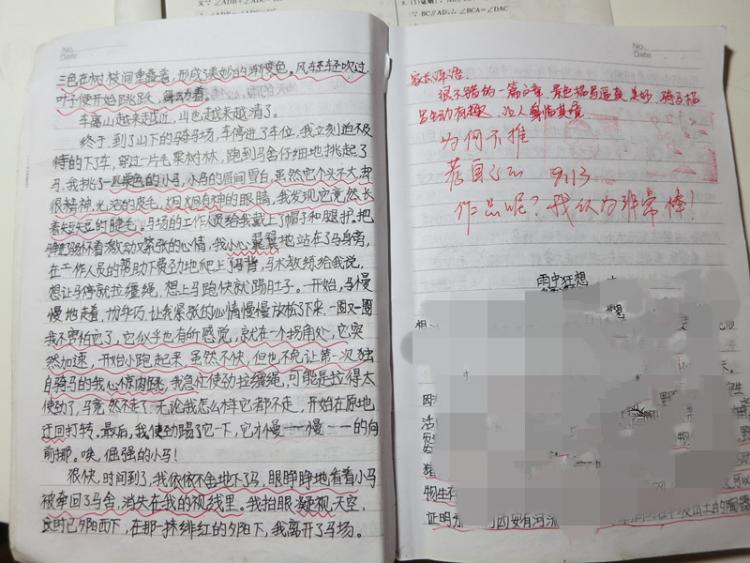 三色在树梢间重叠着,形成漂妙的渐变色。风轻轻吹过
叶子便开始跳跃、舞动着。
车离山越来越近,山也越来越清了。
终于,到了山下的骑马场,车停进了车位,我立刻迫不及
待的下了车,穿过一片毛栗树林,跑到马舍仔细地挑起了
马,我挑了一匹栗色的小马,小马的眉间留白,虽然它个头不大,却
很精神,光洁的皮毛,炯炯有神的眼睛,我发现它竟然长
着短短的睫毛。马场的工作人员给我戴上了帽子和腿护。把
怀着激动又紧张的心情,我小心翼翼地站在了马身旁,
在工作人员的帮助下费劲地爬上了马背,马术教练给我说,
想让马停就拉缰绳,想上马跑快就踢肚子。一开始,马慢
慢地走着,让我紧张的心情慢慢放松了下来,一圈又一圈
我不害怕它了,它似乎也有所感觉,就在一个拐角处,它突
然加速,开始小跑起来,虽然不快,但也不免让第一次独
自骑马的我心惊肉跳,我急忙使劲拉缰绳,可能是拉得太
使劲了,马竟然不走了,无论我怎么样它都不走,开始在原地
迂回打转。最后,我使劲踢了它一下,它才慢——慢——的向
前挪。唉,倔强的小马!
很快,时间到了,我依依不舍地下了马,眼睁睁地看着小马
被牵回了马舍,消失在我的视线里。我抬眼凝视天空,
这时已夕阳西下,在那一抹绯红的夕阳下,我离开了马场。
No.
Date
家长评语:
很不错的一篇文章,景色描写逼真,美妙,骑马描
写生动有趣,让人身临其境
为何不推
荐自己的 9.13
作品呢?我认为非常棒!
雨中狂想
物生存
证明